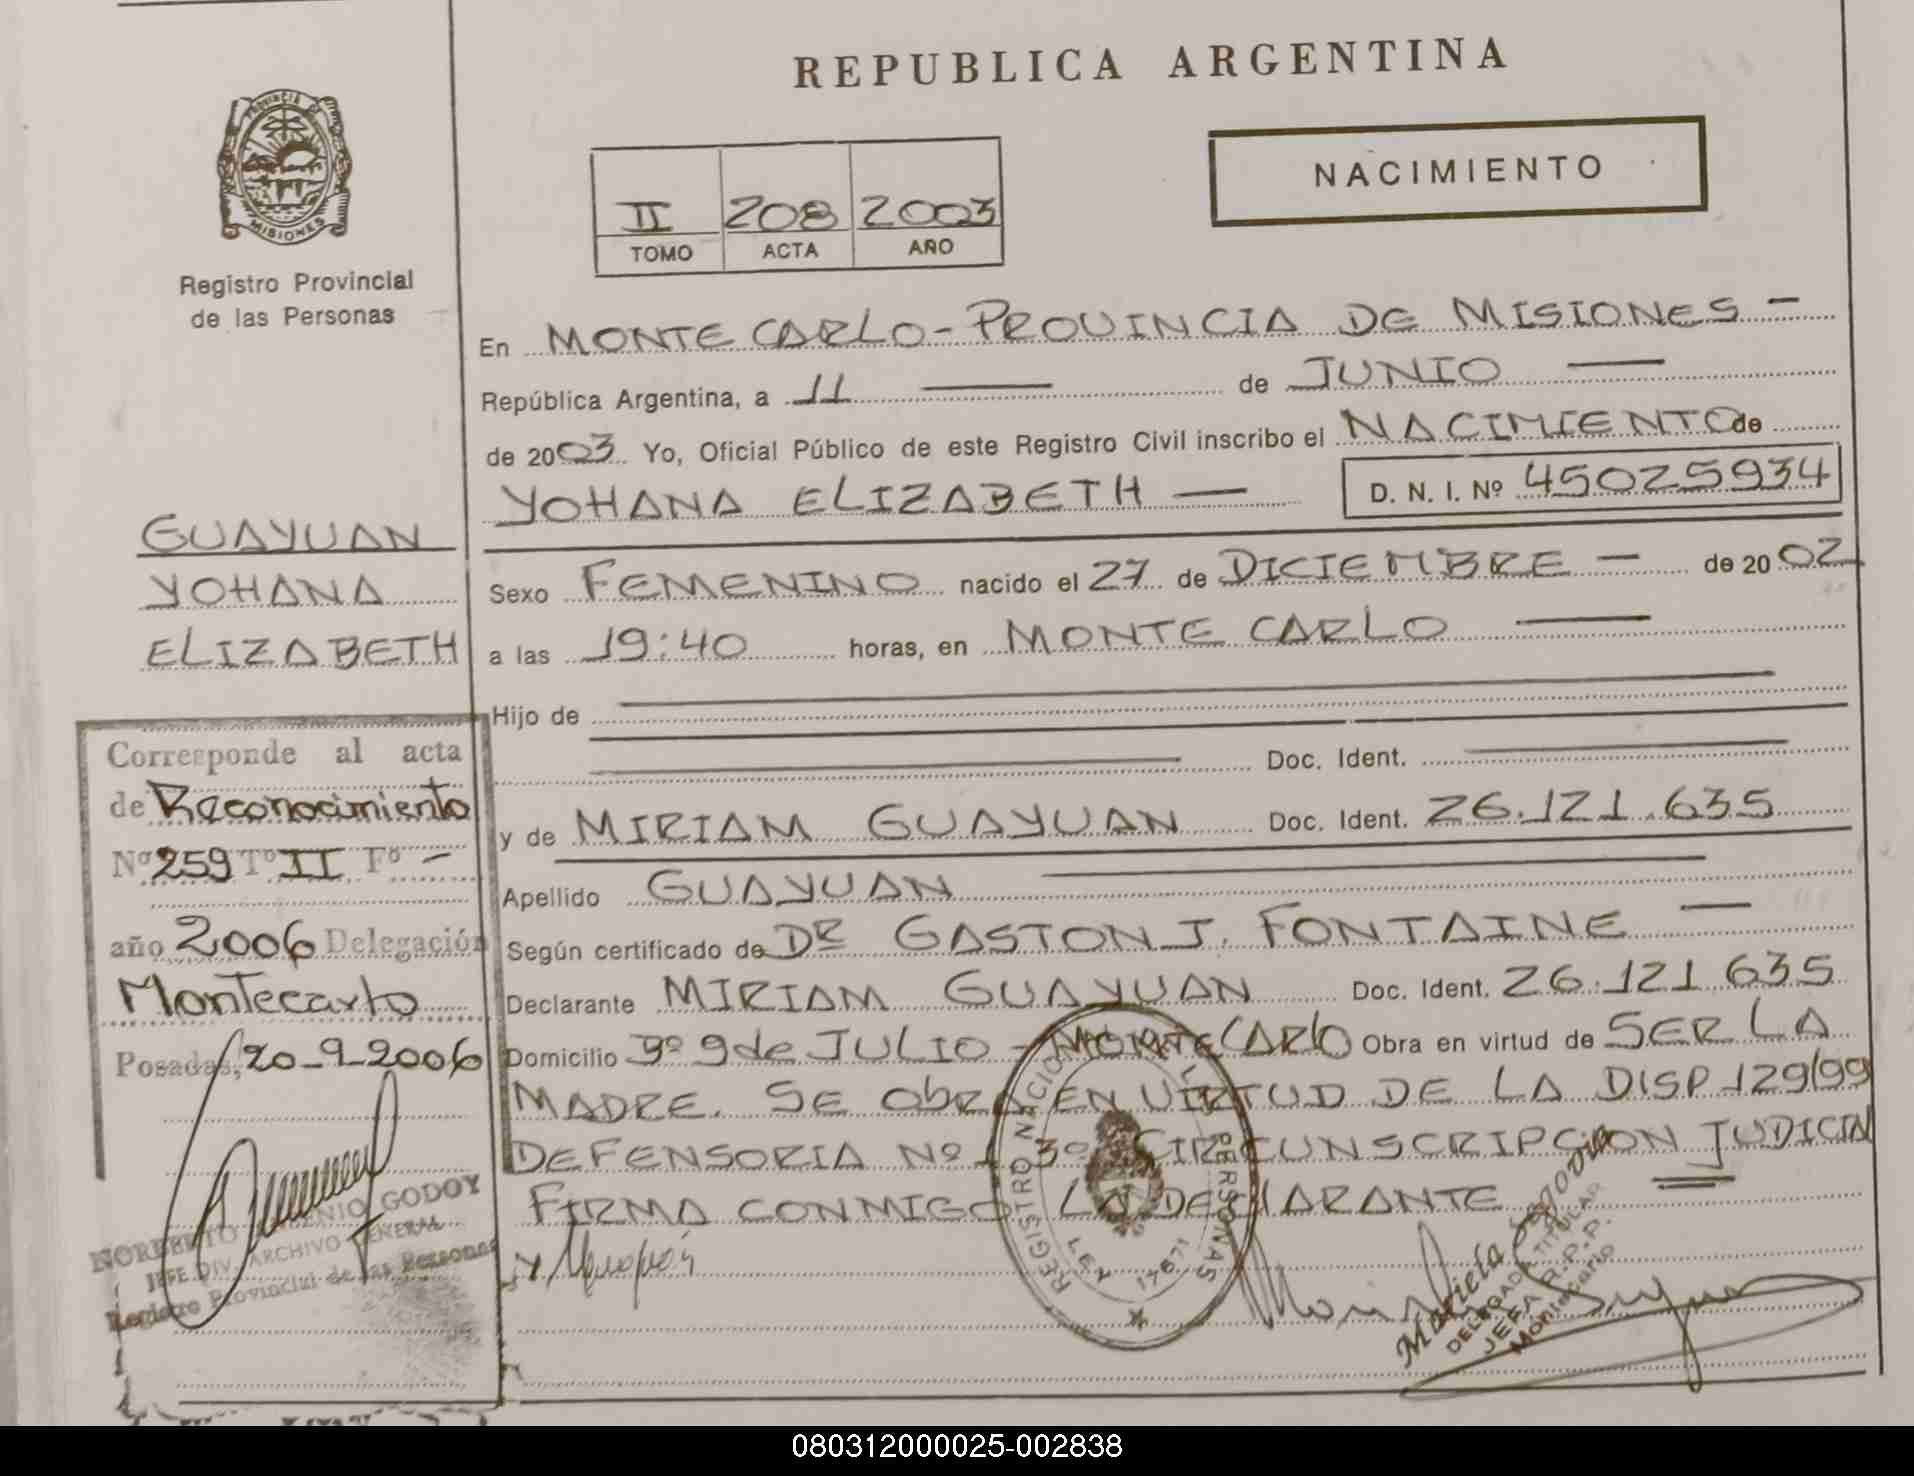 REPUBLICA ARGENTINA
PROVINCIA DE
MISIONES
Registro Provincial
de las Personas
II 208 2003
TOMO ACTA AÑO
NACIMIENTO
En MONTECARLO-PROVINCIA DE MISIONES -
República Argentina, a 11 de JUNIO
de 2003 Yo, Oficial Público de este Registro Civil inscribo el NACIMIENTO de
YOHANA ELIZABETH — D. N. I. Nº 45025934
GUAYUAN
YOHANA
ELIZABETH
Sexo FEMENINO nacido el 27 de DICIEMBRE — de 2002
a las 19:40 horas, en MONTE CARLO
Hijo de
Doc. Ident.
y de MIRIAM GUAYUAN Doc. Ident. 26.121.635
Apellido GUAYUAN
Según certificado de DR GASTON J. FONTAINE —
Declarante MIRIAM GUAYUAN Doc. Ident. 26.121.635
Domicilio Bº 9 de JULIO - MONTECARlO Obra en virtud de SER LA
MADRE. SE ObRA EN VIRTUD DE LA DISP. 129/99
DEFENSORIA Nº 1 3º CIRCUNSCRIPCION JUDICIAL
FIRMA CONMIGO LA DECLARANTE
Corresponde al acta
de Reconocimiento
Nº 259 Tº II Fº -
año 2006 Delegación
Montecarlo
Posadas, 20-9-2006
NORBERTO EUGENIO GODOY
JEFE DIV. ARCHIVO GENERAL
Registro Provincial de las Personas
REGISTRO NACIONAL DE LAS PERSONAS
LEY 17671
Mariela Segovia
DELEGADA TITULAR
JEFA R.P.P.
Montecarlo
080312000025-002838